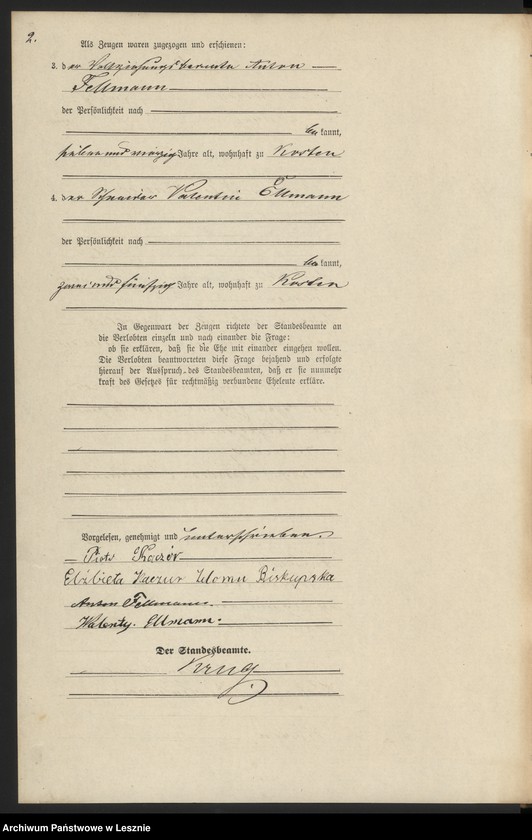 2.
Als Zeugen waren zugezogen und erschienen:
3. der Vollziehungsbeamte Anton
Fellmann
der Persönlichkeit nach
bekannt,
sieben und vierzig Jahre alt, wohnhaft zu Kosten
4. der Schneider Valentin Ellmann
der Persönlichkeit nach
bekannt,
zwei und fünfzig Jahre alt, wohnhaft zu Kosten
In Gegenwart der Zeugen richtete der Standesbeamte an
die Verlobten einzeln und nach einander die Frage:
ob sie erklären, daß sie die Ehe mit einander eingehen wollen.
Die Verlobten beantworteten diese Frage bejahend und erfolgte
hierauf der Ausspruch des Standesbeamten, daß er sie nunmehr
kraft des Gesetzes für rechtmäßig verbundene Eheleute erkläre.
Vorgelesen, genehmigt und unterschrieben.
Piotr Kaczór
Elzbieta Kaczur zdomu Biskupska
Anton Fellmann.
Walenty. Ellmann.
Der Standesbeamte.
Krug
Archiwum Państwowe w Lesznie